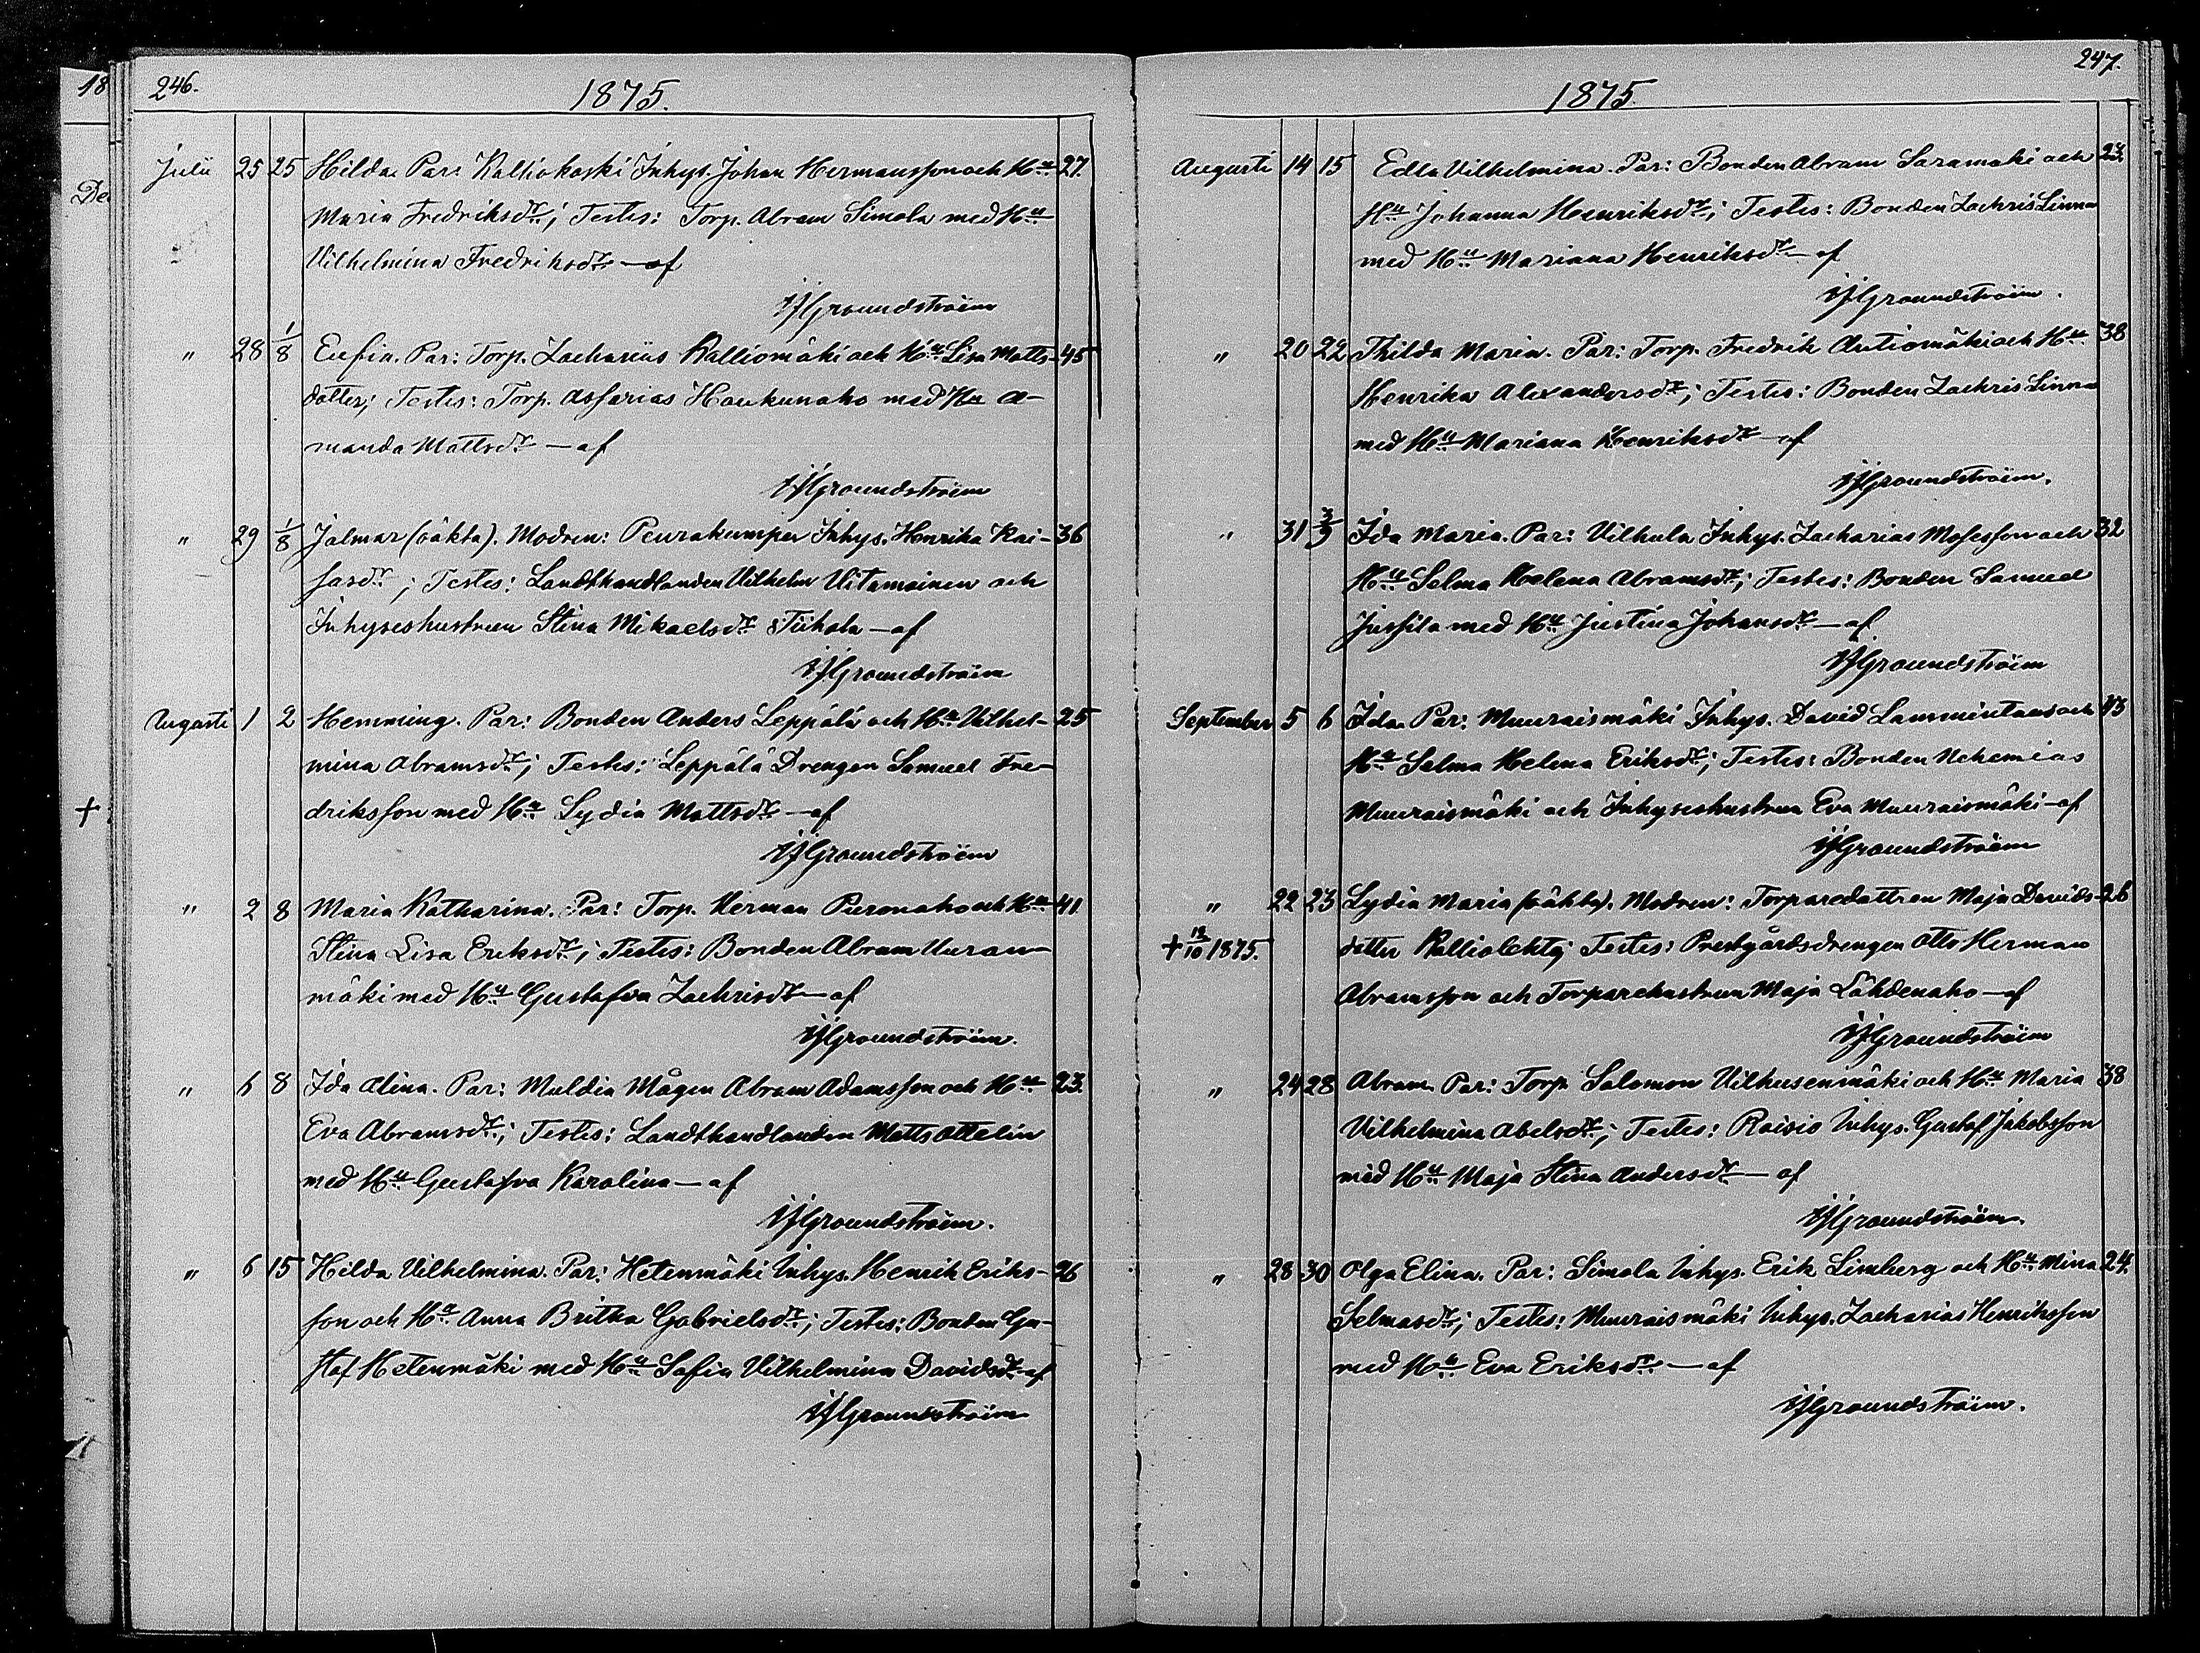 18
De
†
246.
1875.
Julii 25 25 Hilda. Par: Kalliokoski Inhys. Johan Hermansson och Hu 27.
Maria Fredriksdr; Testes: Torp. Abram Simola med Hu
Vilhelmina Fredriksdr — af
Groundstroëm
" 28 1/8 Eufia. Par: Torp. Zacharias Kalliomäki och Hu Lisa Matts- 45
dotter; Testes: Torp. Assarias Haukunaho med Hu A-
manda Mattsdr — af
Groundstroëm
" 29 1/8 Jalmar (oäkta). Modren: Peurakumpu Inhys. Henrika Kai- 36
sasdr; Testes: Landthandlanden Vilhelm Vitamainen och
Inhyseshustrun Stina Mikaelsdr Tiihola — af
Groundstroëm
Augusti 1 2 Hemming. Par: Bonden Anders Leppälä och Hu Vilhel- 25
mina Abramsdr; Testes: Leppälä Drengen Samuel Fre-
driksson med Hu Lydia Mattsdr — af
Groundstroëm
" 2 8 Maria Katharina. Par: Torp. Herman Puronaho och Hu 41.
Stina Lisa Eriksdr; Testes: Bonden Abram Uuran-
mäki med Hu Gustafva Zachrisdr — af
Groundstroëm.
" 6 8 Ida Alina. Par: Muldia Mågen Abram Adamsson och Hu 23.
Eva Abramsdr; Testes: Landthandlanden Matts Ottelin
med Hu Gustafva Karolina — af
Groundstroëm.
" 6 15 Hilda Vilhelmina. Par: Hetenmäki Inhys. Henrik Eriks- 26
son och Hu Anna Britha Gabrielsdr; Testes: Bonden Gu-
staf Hetenmäki med Hu Sofia Vilhelmina Davidsdr af
Groundstroëm
247.
1875.
Augusti 14 15 Edla Vilhelmina. Par: Bonden Abram Saramäki och 23.
Hu Johanna Henriksdr; Testes: Bonden Zachris Linna
med Hu Mariana Henriksdr — af
Groundstroëm.
" 20 22 Thilda Maria. Par: Torp. Fredrik Autiomäki och Hu 38
Henrika Alexandersdr; Testes: Bonden Zachris Linna
med Hu Mariana Henriksdr — af
Groundstroëm.
" 31 3/9 Ida Maria. Par: Vilhula Inhys. Zacharias Mosesson och 32
Hu Selma Helena Abramsdr; Testes: Bonden Samuel
Jussila med Hu Justina Johansdr — af
Groundstroëm
September 5 6 Ida. Par: Muuraismäki Inhys. David Lammintaus och 43
Hu Selma Helena Eriksdr; Testes: Bonden Nehemias
Muuraismäki och Inhyseshustrun Eva Muuraismäki — af
Groundstroëm
" 22 23 Lydia Maria (oäkta). Modren: Torparedottren Maja Davids- 26
† 12/10 1875. dotter Kalliolehto; Testes: Prestgårdsdrengen Otto Herman
Abramsson och Torparehustrun Maja Lähdenaho — af
Groundstroëm
" 24 28 Abram. Par: Torp. Salomon Vilhusenmäki och Hu Maria 38
Vilhelmina Abelsdr; Testes: Raisio Inhys. Gustaf Jakobsson
med Hu Maja Stina Andersdr — af
Groundstroëm.
" 28 30 Olga Elina. Par: Simola Inhys. Erik Limberg och Hu Mina 24.
Selmasdr; Testes: Muuraismäki Inhys. Zacharias Henriksson
med Hu Eva Eriksdr — af
Groundstroëm.